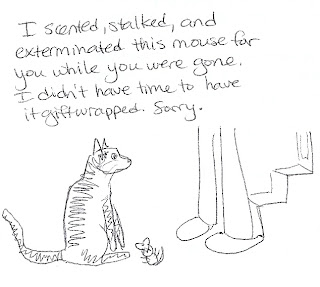 I scented, stalked, and
exterminated this mouse for
you while you were gone.
I didn't have time to have
it giftwrapped. Sorry.